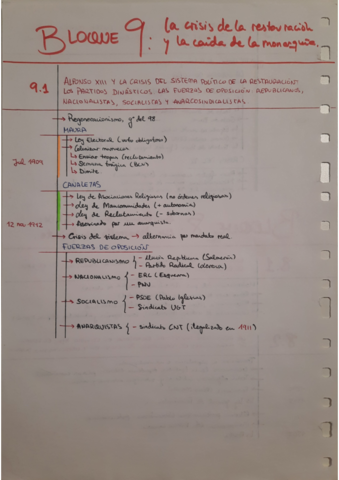 BLOQUE 9: La crisis de la restauración
y la caída de la monarquía.
9.1 ALFONSO XIII Y LA CRISIS DEL SISTEMA POLÍTICO DE LA RESTAURACIÓN:
LOS PARTIDOS DINÁSTICOS. LAS FUERZAS DE OPOSICIÓN: REPUBLICANOS,
NACIONALISTAS, SOCIALISTAS Y ANARCOSINDICALISTAS
→ Regeneracionismo, 98
MAURA
→ Ley Electoral (voto obligatorio)
→ Gobierno
Jul 1909 ↳ Enviar tropas (reclutamiento)
↳ Semana trágica (BCN)
↳ Dimite
CANALEJAS
→ Ley de Asociaciones Religiosas (no órdenes religiosas)
→ Ley de Mancomunidades (+ autonomía)
→ Ley de Reclutamiento
12 nov 1912 → Asesinado por un anarquista
→ Crisis del sistema → alternancia por mandato real
FUERZAS DE OPOSICIÓN
→ REPUBLICANISMO { - Unión República (Salmerón)
- Partido Radical (Lerroux)
→ NACIONALISMO { - ERC (Esquerra)
- PNV
→ SOCIALISMO { - PSOE (Pablo Iglesias)
- Sindicato UGT
→ ANARQUISTAS { - sindicato CNT (ilegalizado en 1911)